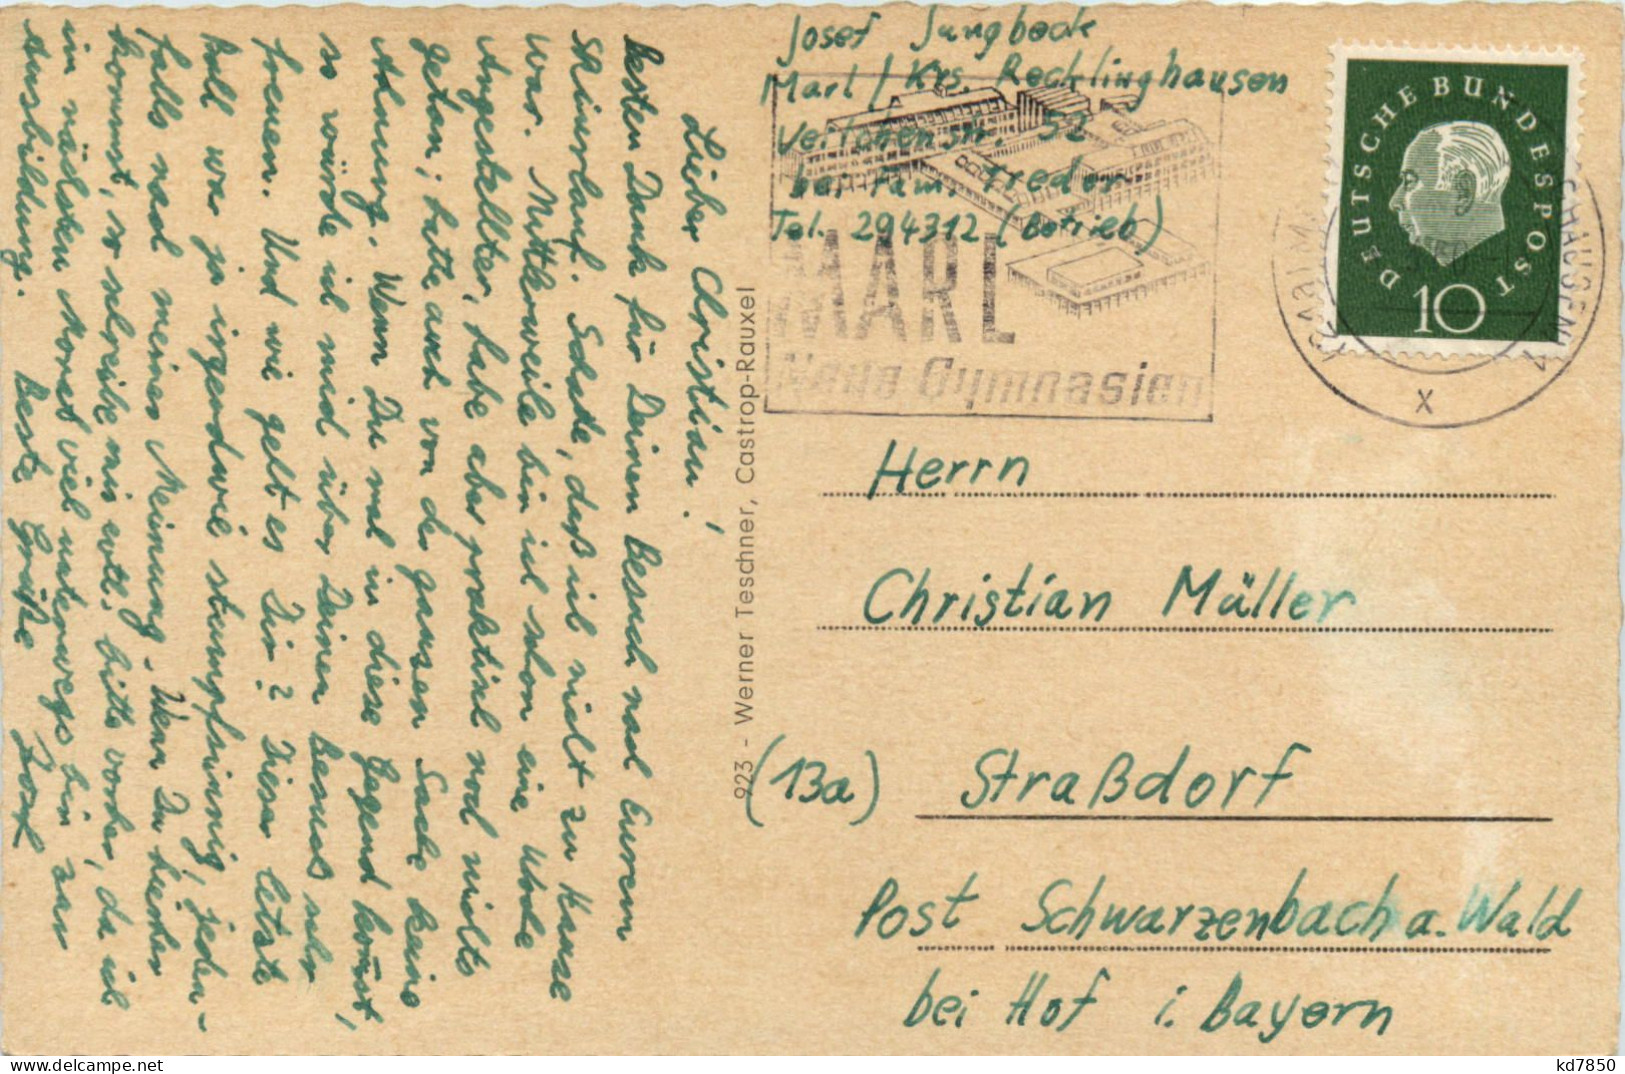 Josef Jungbeck
Marl / Krs. Recklinghausen
bei Fam.
Tel. 294312 (Betrieb)
MARL
Neue Gymnasien
DEUTSCHE BUNDESPOST
10
x
Herrn
Christian Müller
(13a) Straßdorf
Post Schwarzenbach a. Wald
bei Hof i. Bayern
923 - Werner Teschner, Castrop-Rauxel
Lieber Christian!
Besten Dank für Deinen Besuch nach Eurem
Skiurlaub. Schade, daß ich nicht zu Hause
war. Mittlerweile bin ich schon eine Woche
Angestellter, habe aber praktisch noch nichts
getan; hatte auch von der ganzen Sache keine
Ahnung. Wenn Du mal in diese Gegend kommst,
so würde ich mich über Deinen Besuch sehr
freuen. Und wie geht es Dir? Dieser letzte
war ja irgendwie stumpfsinnig, jeden-
falls nach meiner Meinung. Wenn Du hierher
kommst, so schreibe mir evtl. bitte vorher, da ich
im nächsten Monat viel unterwegs bin zur
Ausbildung. Beste Grüße Josef
kd7850